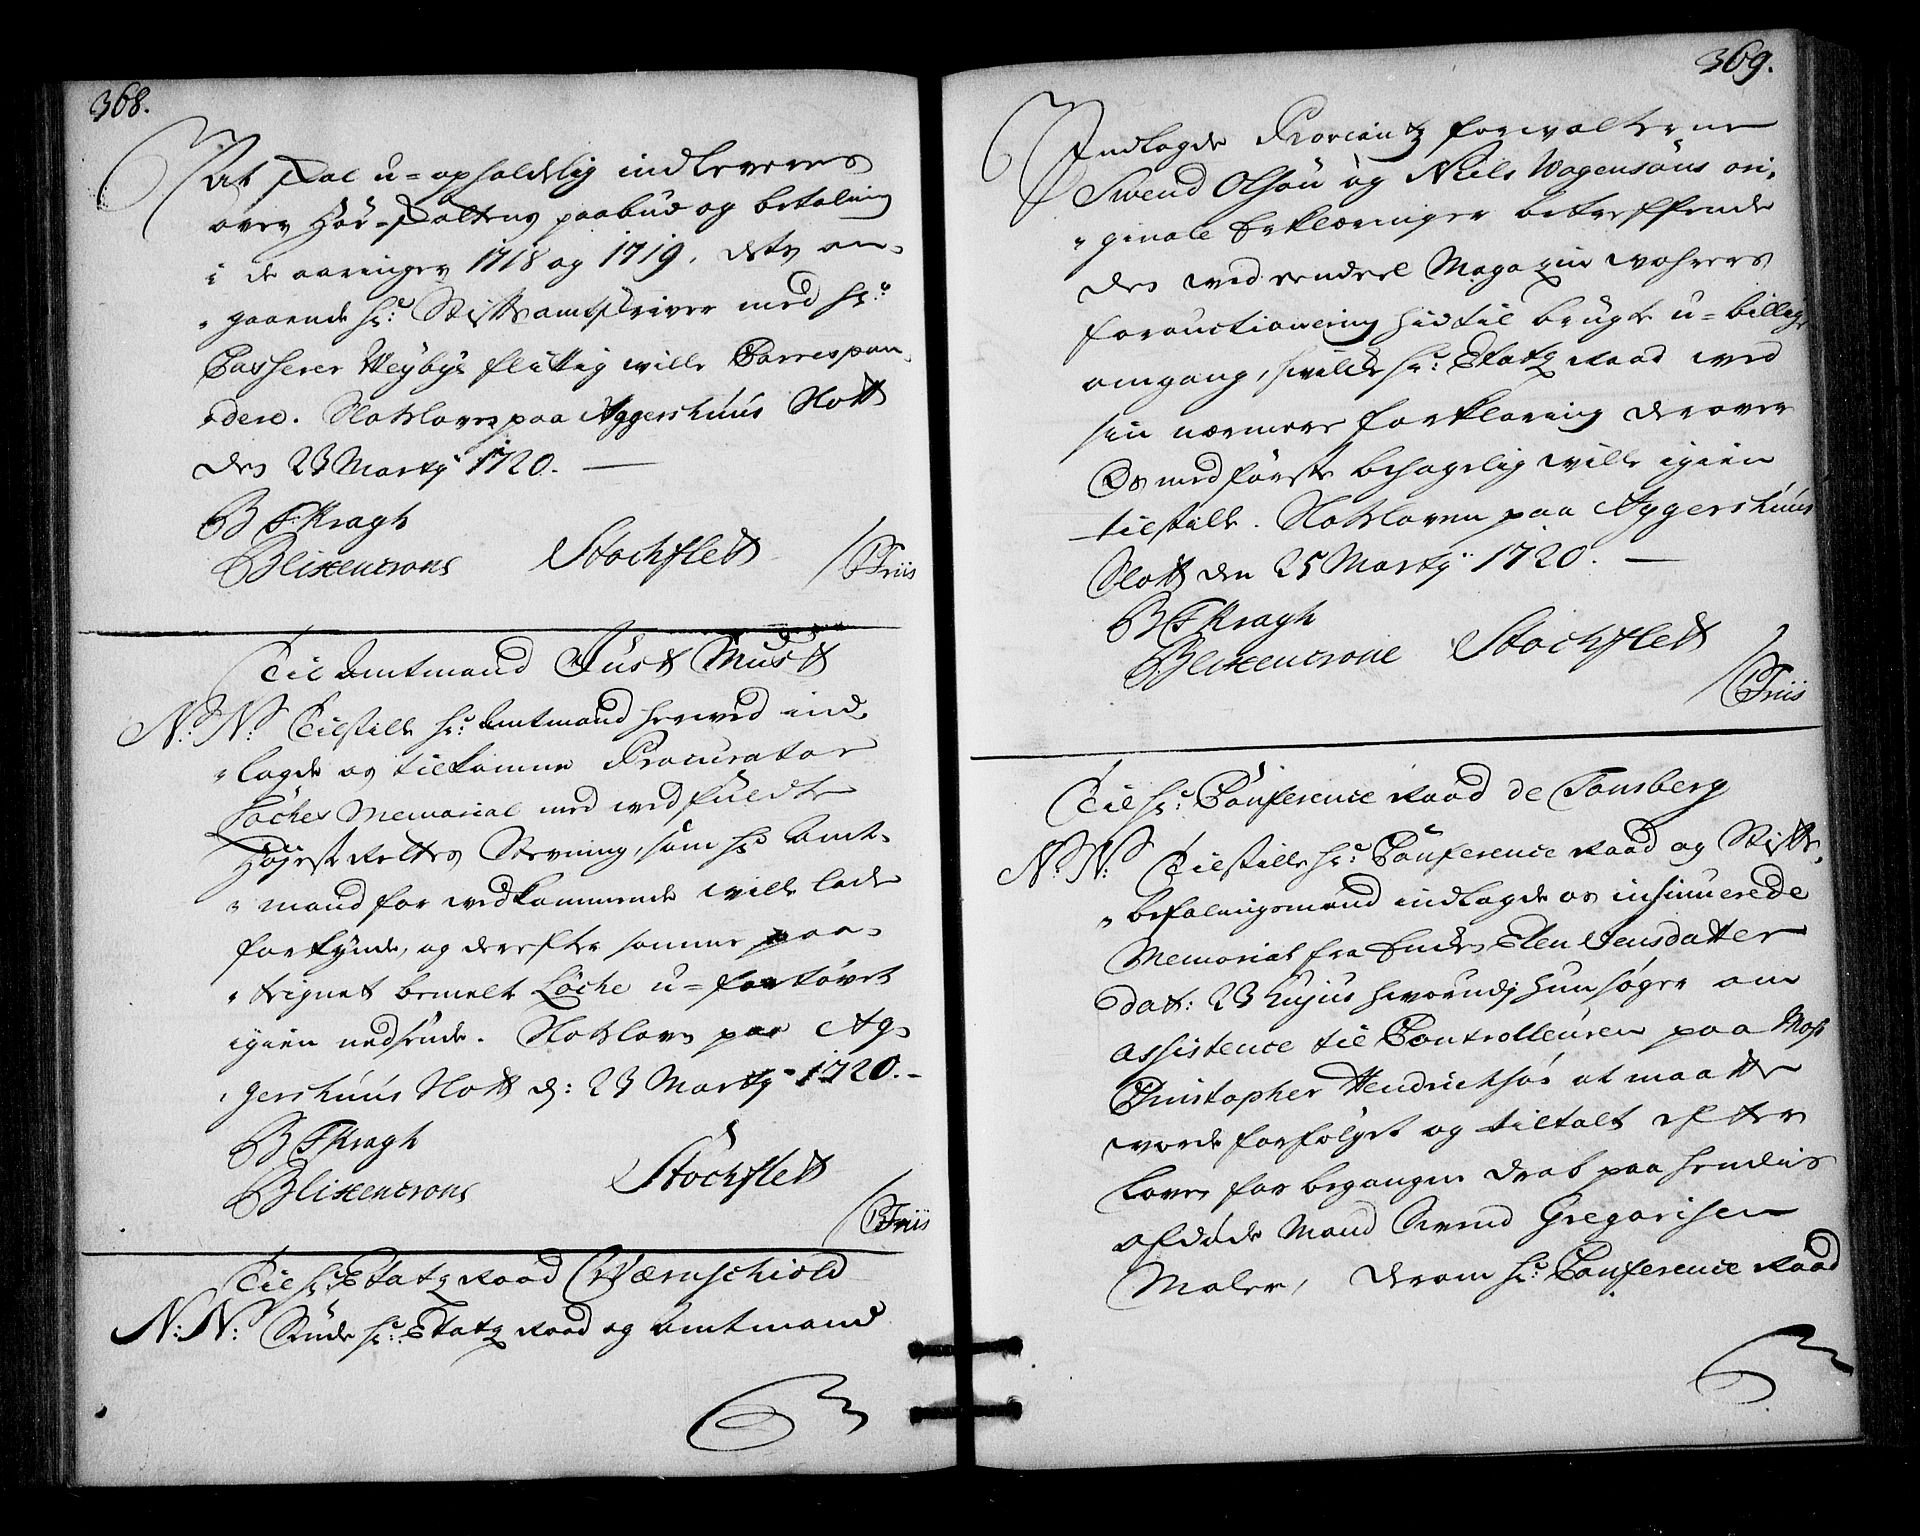 368.
At skal u-opholdelig indleveres
over Hør-skattens paabud og betaling
i de aaringer 1718 og 1719. dets an-
„gaaende hr: Stifftamtskriver med hr:
Casserer Weybye flittig wille Correspon-
„dere. Slotzloven paa Aggershuus Slott
den 23 Martÿ 1720.
B F Kragh
Blixencrone Stochflett
/ B Friis
Til Amtmand Just Must
N: N: Tilstille hr: Amtmand herved ind-
„lagde os tilkomne Procurator
Løches Memorial med wedfuldte
Højeste Rettes Stevning, som hr Amt-
„mand for wedkommende wille lade
forkynde, og derefter samme paa-
„teignet bemelte Løche u-fortøvet
igien nedsende. Slotzlov paa Ag-
„gershuus Slott d: 23 Martÿ 1720.-
B F Kragh
Blixencrone Stochflett
/ B Friis
Til hr: Etatz Raad Wærnschiold
N: N: Sende hr: Etatz Raad og Amtmand
369.
Indlagde Proviantz forwalterne
Swend Olsøn og Niels Wogensøns ori-
„ginale Erklæringer betreffende
des wed eendeel Magazin wahrers
forauctionering hidtil brugte u-billige
omgang, hvilke hr: Etatz Raad med
sin nærmere forklaring derover
Os med første behagelig wille igien
tilstille. Slotzloven paa Aggershuus
Slott den 25 Martÿ 1720.
B F Kragh
Blixencrone Stochflett
/ B Friis
Til hr: Conference Raad de Tonsberg
N: N: Tilstille hr: Conference Raad og Stifts-
„befalingsmand indlagde os insinuerede
Memorial fra Enken Elen Jensdatter
dat: 23 hujus hvorudj hun søger om
assistence til Controlleuren paa Moss
Christopher Hendrichsøn at maatte
worde forfølget og tiltalt efter
Loven for begangen drab paa hendis
afdøde Mand Swend Gregorisen
Maler, derom hr: Conference Raad